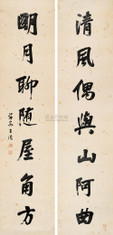 清風偶與山阿曲
明月聊随屋角方